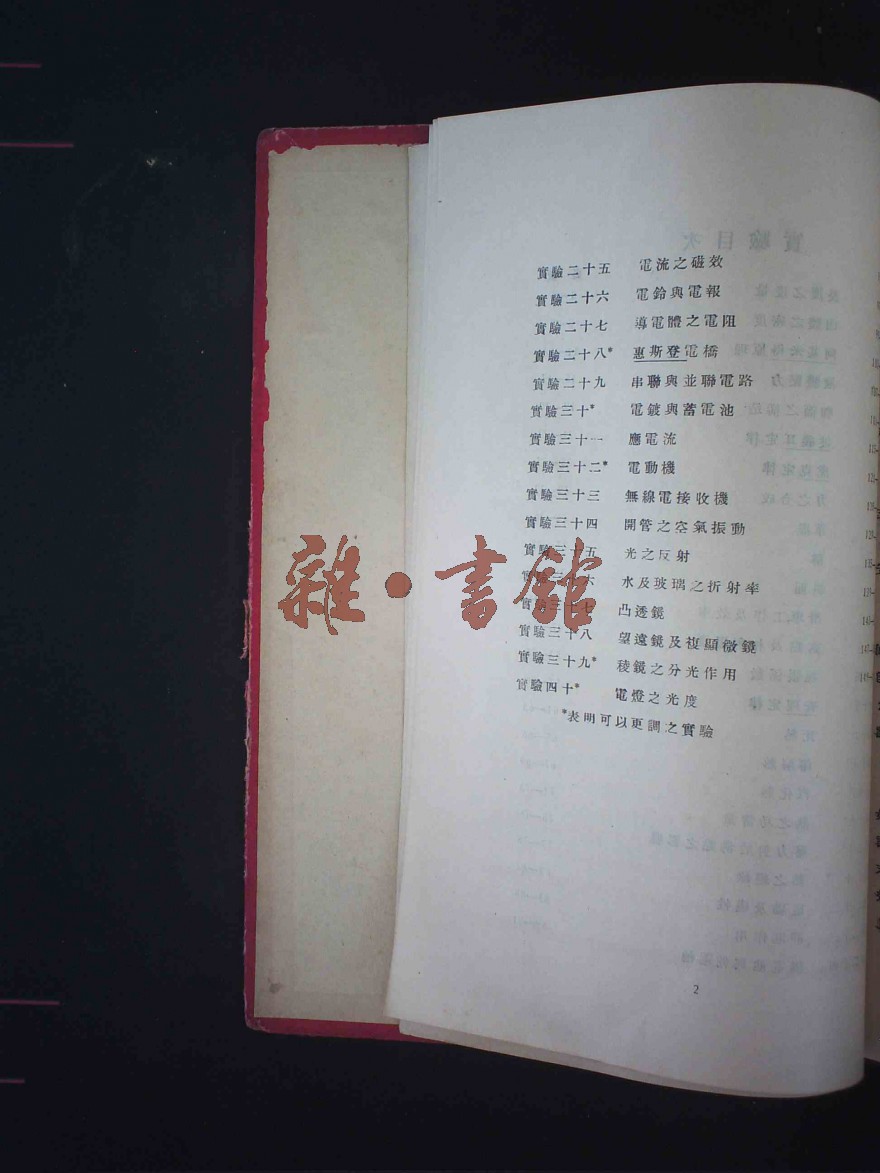 實驗二十五 電流之磁效
實驗二十六 電鈴與電報
實驗二十七 導電體之電阻
實驗二十八* 惠斯登電橋
實驗二十九 串聯與並聯電路
實驗三十* 電鍍與蓄電池
實驗三十一 應電流
實驗三十二* 電動機
實驗三十三 無線電接收機
實驗三十四 開管之空氣振動
實驗三十五 光之反射
實驗三十六 水及玻璃之折射率
實驗三十七 凸透鏡
實驗三十八 望遠鏡及複顯微鏡
實驗三十九* 稜鏡之分光作用
實驗四十* 電燈之光度
*表明可以更調之實驗
2
雜·書館